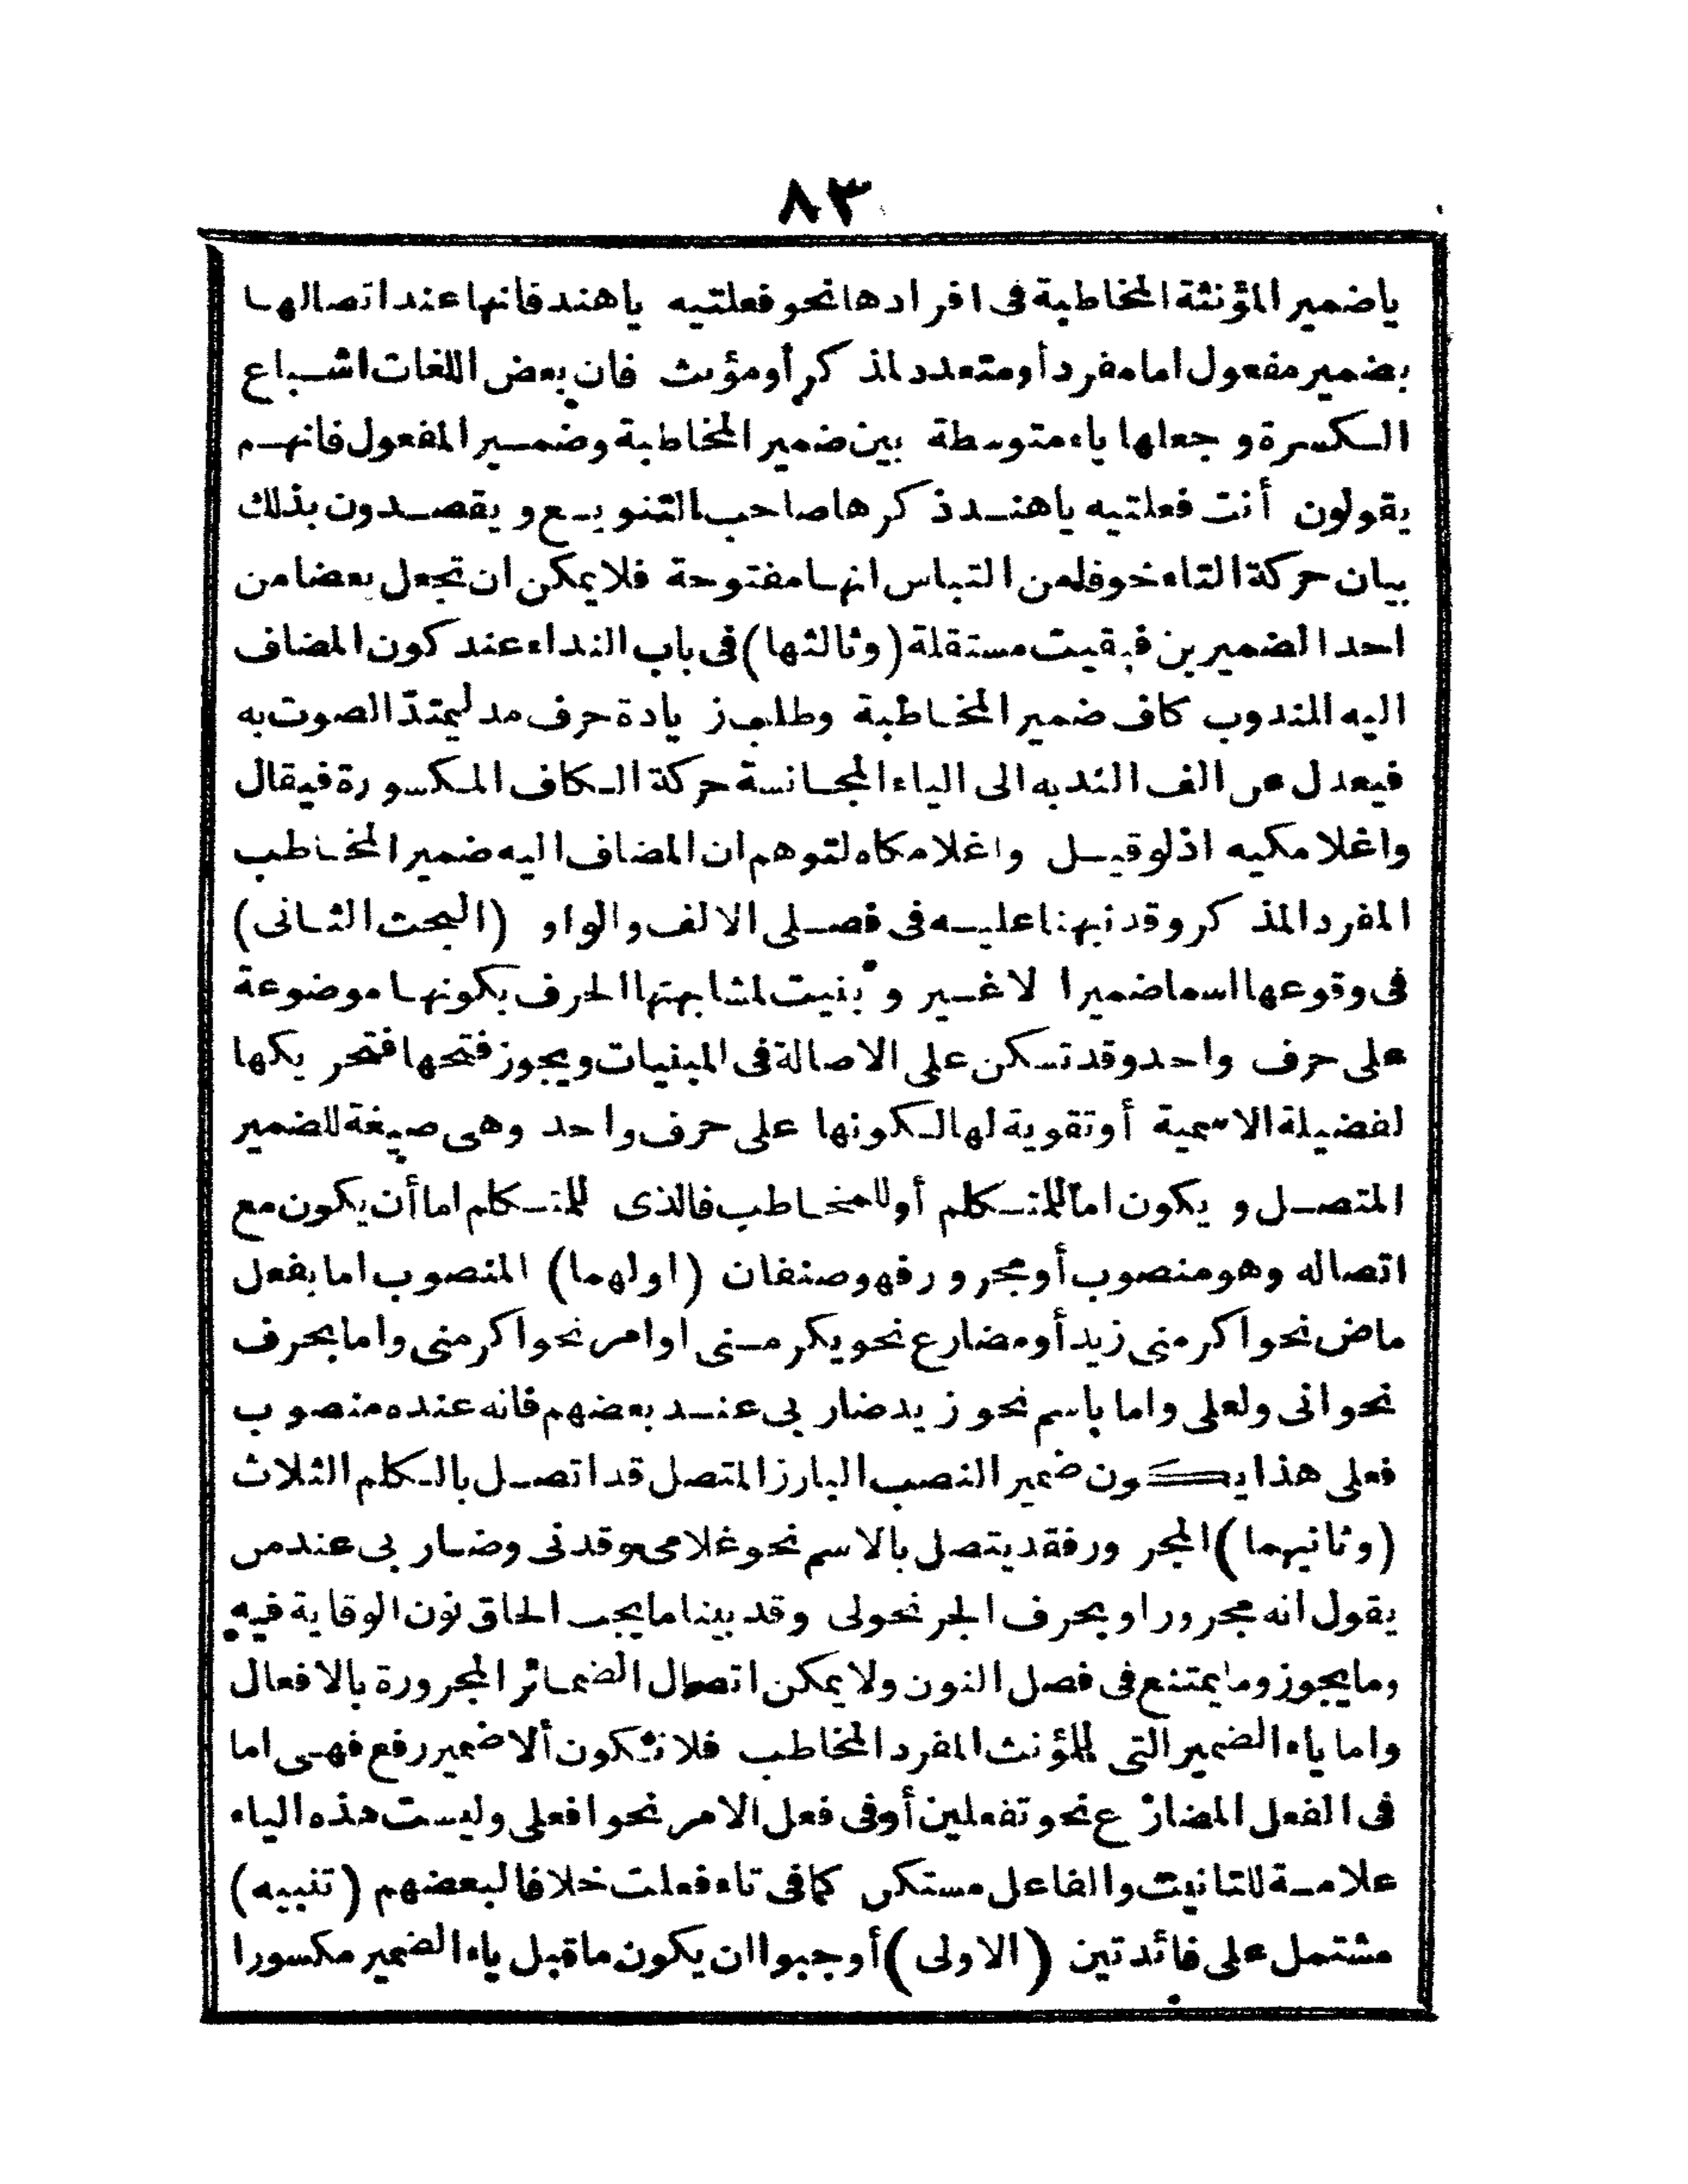 ٨٣
ياضمير المؤنثة المخاطبة فى افرادها نحو فعلتيه ياهند فانها عند اتصالها
بضمير مفعول اما مفرد أو متعدد لمذكر أو مؤنث فان بعض اللغات اشباع
الكسرة وجعلها ياء متوسطة بين ضمير المخاطبة وضمير المفعول فانهم
يقولون أنت فعلتيه ياهند ذكرها صاحب التنويع ويقصدون بذلك
بيان حركة التاء خوفا من التباس انها مفتوحة فلا يمكن ان تجعل بعضا من
احد الضميرين فبقيت مستقلة (وثالثها) فى باب النداء عند كون المضاف
اليه المندوب كاف ضمير المخاطبة وطلب زيادة حرف مد ليمتدّ الصوت به
فيعدل عن الف الندبه الى الياء المجانسة حركة الكاف المكسورة فيقال
واغلامكيه اذ لو قيل واغلامكاه لتوهم ان المضاف اليه ضمير المخاطب
المفرد المذكر وقد نبهنا عليه فى فصلى الالف والواو (البحث الثانى)
فى وقوعها اسما ضميرا لاغير وبنيت لمشابهتها الحرف بكونها موضوعة
على حرف واحد وقد تسكن على الاصالة فى المبنيات ويجوز فتحها فتحريكها
لفضيلة الاسمية أو تقوية لها لكونها على حرف واحد وهى صيغة للضمير
المتصل ويكون اما للمتكلم أو للمخاطب فالذى للمتكلم اما أن يكون مع
اتصاله وهو منصوب أو مجرور فهو صنفان (اولهما) المنصوب اما بفعل
ماض نحو اكرمنى زيد أو مضارع نحو يكرمنى او امر نحو اكرمنى واما بحرف
نحو انى ولعلى واما باسم نحو زيد ضاربى عند بعضهم فانه عنده منصوب
فعلى هذا يكون ضمير النصب البارز المتصل قد اتصل بالكلم الثلاث
(وثانيهما) المجرور فقد يتصل بالاسم نحو غلامى وقدنى وضاربى عند من
يقول انه مجرور او بحرف الجر نحو لى وقد بينا ما يجب الحاق نون الوقاية فيه
وما يجوز وما يمتنع فى فصل النون ولا يمكن اتصال الضمائر المجرورة بالافعال
واما ياء الضمير التى للمؤنث المفرد المخاطب فلا تكون ألا ضمير رفع فهى اما
فى الفعل المضارع نحو تفعلين أو فى فعل الامر نحو افعلى وليست هذه الياء
علامة للتانيث والفاعل مستكن كما فى تاء فعلت خلافا لبعضهم (تنبيه)
مشتمل على فائدتين (الاولى) أوجبوا ان يكون ماقبل ياء الضمير مكسورا